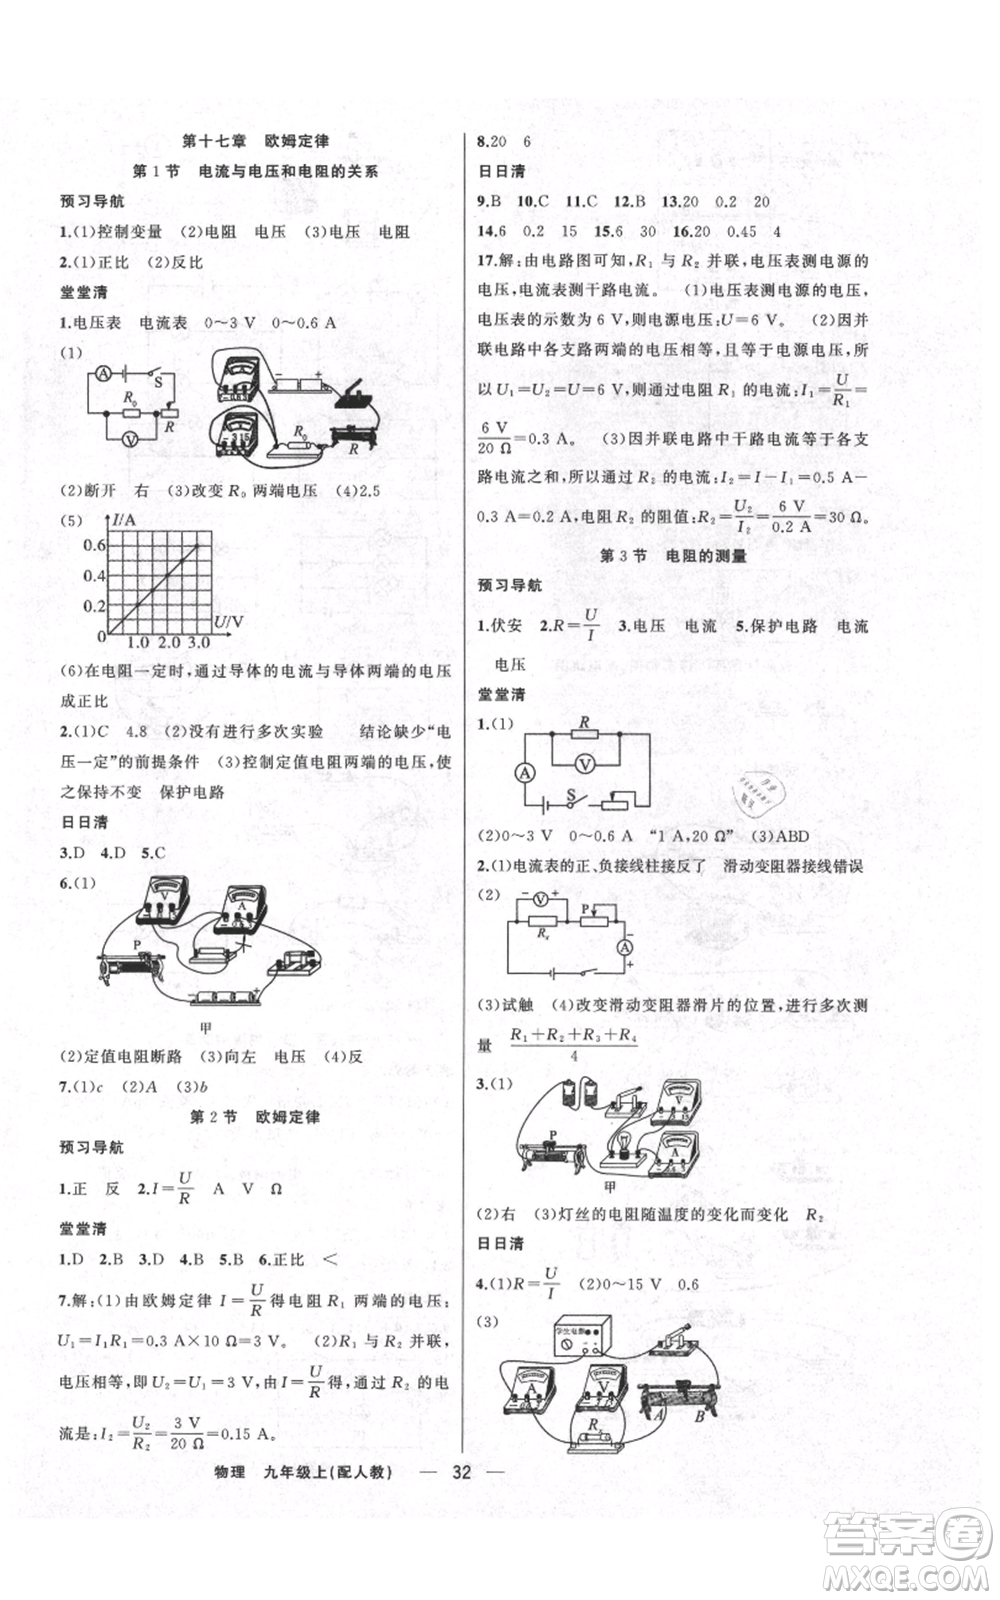 第十七章 欧姆定律
第1节 电流与电压和电阻的关系
预习导航
1.(1)控制变量 (2)电阻 电压 (3)电压 电阻
2.(1)正比 (2)反比
堂堂清
1.电压表 电流表 0～3 V 0～0.6 A
(1)
A S R₀ R V
R₀ R
(2)断开 右 (3)改变 R₀ 两端电压 (4)2.5
(5)
I/A
0.6
0.4
0.2
0 1.0 2.0 3.0 U/V
(6)在电阻一定时,通过导体的电流与导体两端的电压
成正比
2.(1)C 4.8 (2)没有进行多次实验 结论缺少“电
压一定”的前提条件 (3)控制定值电阻两端的电压,使
之保持不变 保护电路
日日清
3.D 4.D 5.C
6.(1)
V A P
甲
(2)定值电阻断路 (3)向左 电压 (4)反
7.(1)c (2)A (3)b
第2节 欧姆定律
预习导航
1.正 反 2.I=U/R A V Ω
堂堂清
1.D 2.B 3.D 4.B 5.B 6.正比 <
7.解:(1)由欧姆定律 I=U/R得电阻 R₁ 两端的电压:
U₁=I₁R₁=0.3 A×10 Ω=3 V。 (2)R₁ 与 R₂ 并联,
电压相等,即 U₂=U₁=3 V,由 I=U/R得,通过 R₂ 的电
流是:U₂/R₂=3 V/20 Ω=0.15 A。
8.20 6
日日清
9.B 10.C 11.C 12.B 13.20 0.2 20
14.6 0.2 15 15.6 30 16.20 0.45 4
17.解:由电路图可知,R₁ 与 R₂ 并联,电压表测电源的
电压,电流表测干路电流。 (1)电压表测电源的电压,
电压表的示数为 6 V,则电源电压:U=6 V。 (2)因并
联电路中各支路两端的电压相等,且等于电源电压,所
以 U₁=U₂=U=6 V,则通过电阻 R₁ 的电流:I₁=U/R₁=
6 V/20 Ω=0.3 A。 (3)因并联电路中干路电流等于各支
路电流之和,所以通过 R₂ 的电流:I₂=I-I₁=0.5 A-
0.3 A=0.2 A,电阻 R₂ 的阻值:R₂=U₂/I₂=6 V/0.2 A=30 Ω。
第3节 电阻的测量
预习导航
1.伏安 2.R=U/I 3.电压 电流 5.保护电路 电流
电压
堂堂清
1.(1)
R V A S
(2)0～3 V 0～0.6 A “1 A,20 Ω” (3)ABD
2.(1)电流表的正、负接线柱接反了 滑动变阻器接线错误
(2)
V P Rₓ A
(3)试触 (4)改变滑动变阻器滑片的位置,进行多次测
量 (R₁+R₂+R₃+R₄)/4
3.(1)
V P A
甲
(2)右 (3)灯丝的电阻随温度的变化而变化 R₂
日日清
4.(1)R=U/I (2)0～15 V 0.6
(3)
学生电源
A V Rₓ A B
物理 九年级上(配人教) — 32 —
答案卷
MXQE.COM